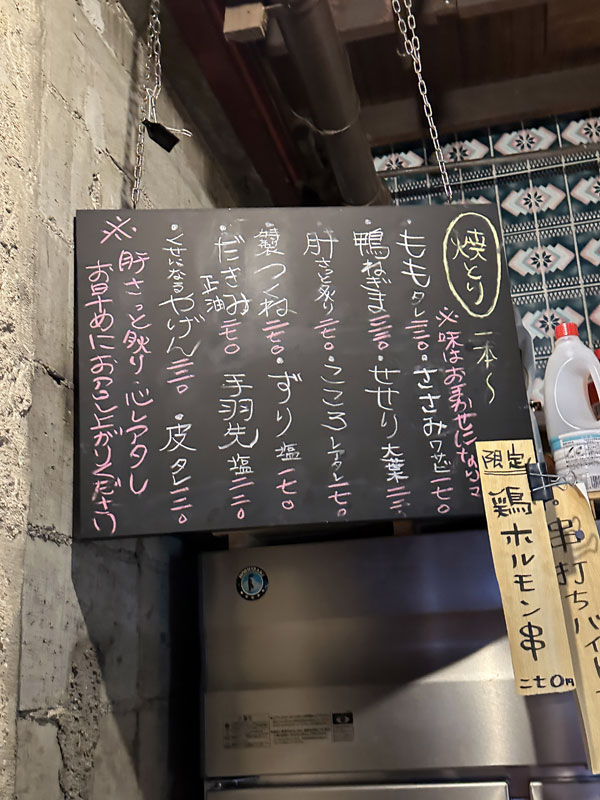 焼とり 一本〜
※味はおまかせになります
・ももタレ 二三〇
・ささみワサビ 一七〇
・鴨ねぎま
・せせり 大葉
・肝さっと炙り 一七〇
・こころレアタレ 一七〇
・特製つくね 二七〇
・ずり 塩 一七〇
・だきみ正油 二七〇
・手羽先 塩 二二〇
・くせになるやげん
・皮タレ 一二〇
※肝さっと炙り・心レアタレ
お早めにお召し上がりください
限定
鶏ホルモン串
二七〇円
串打ちバイト